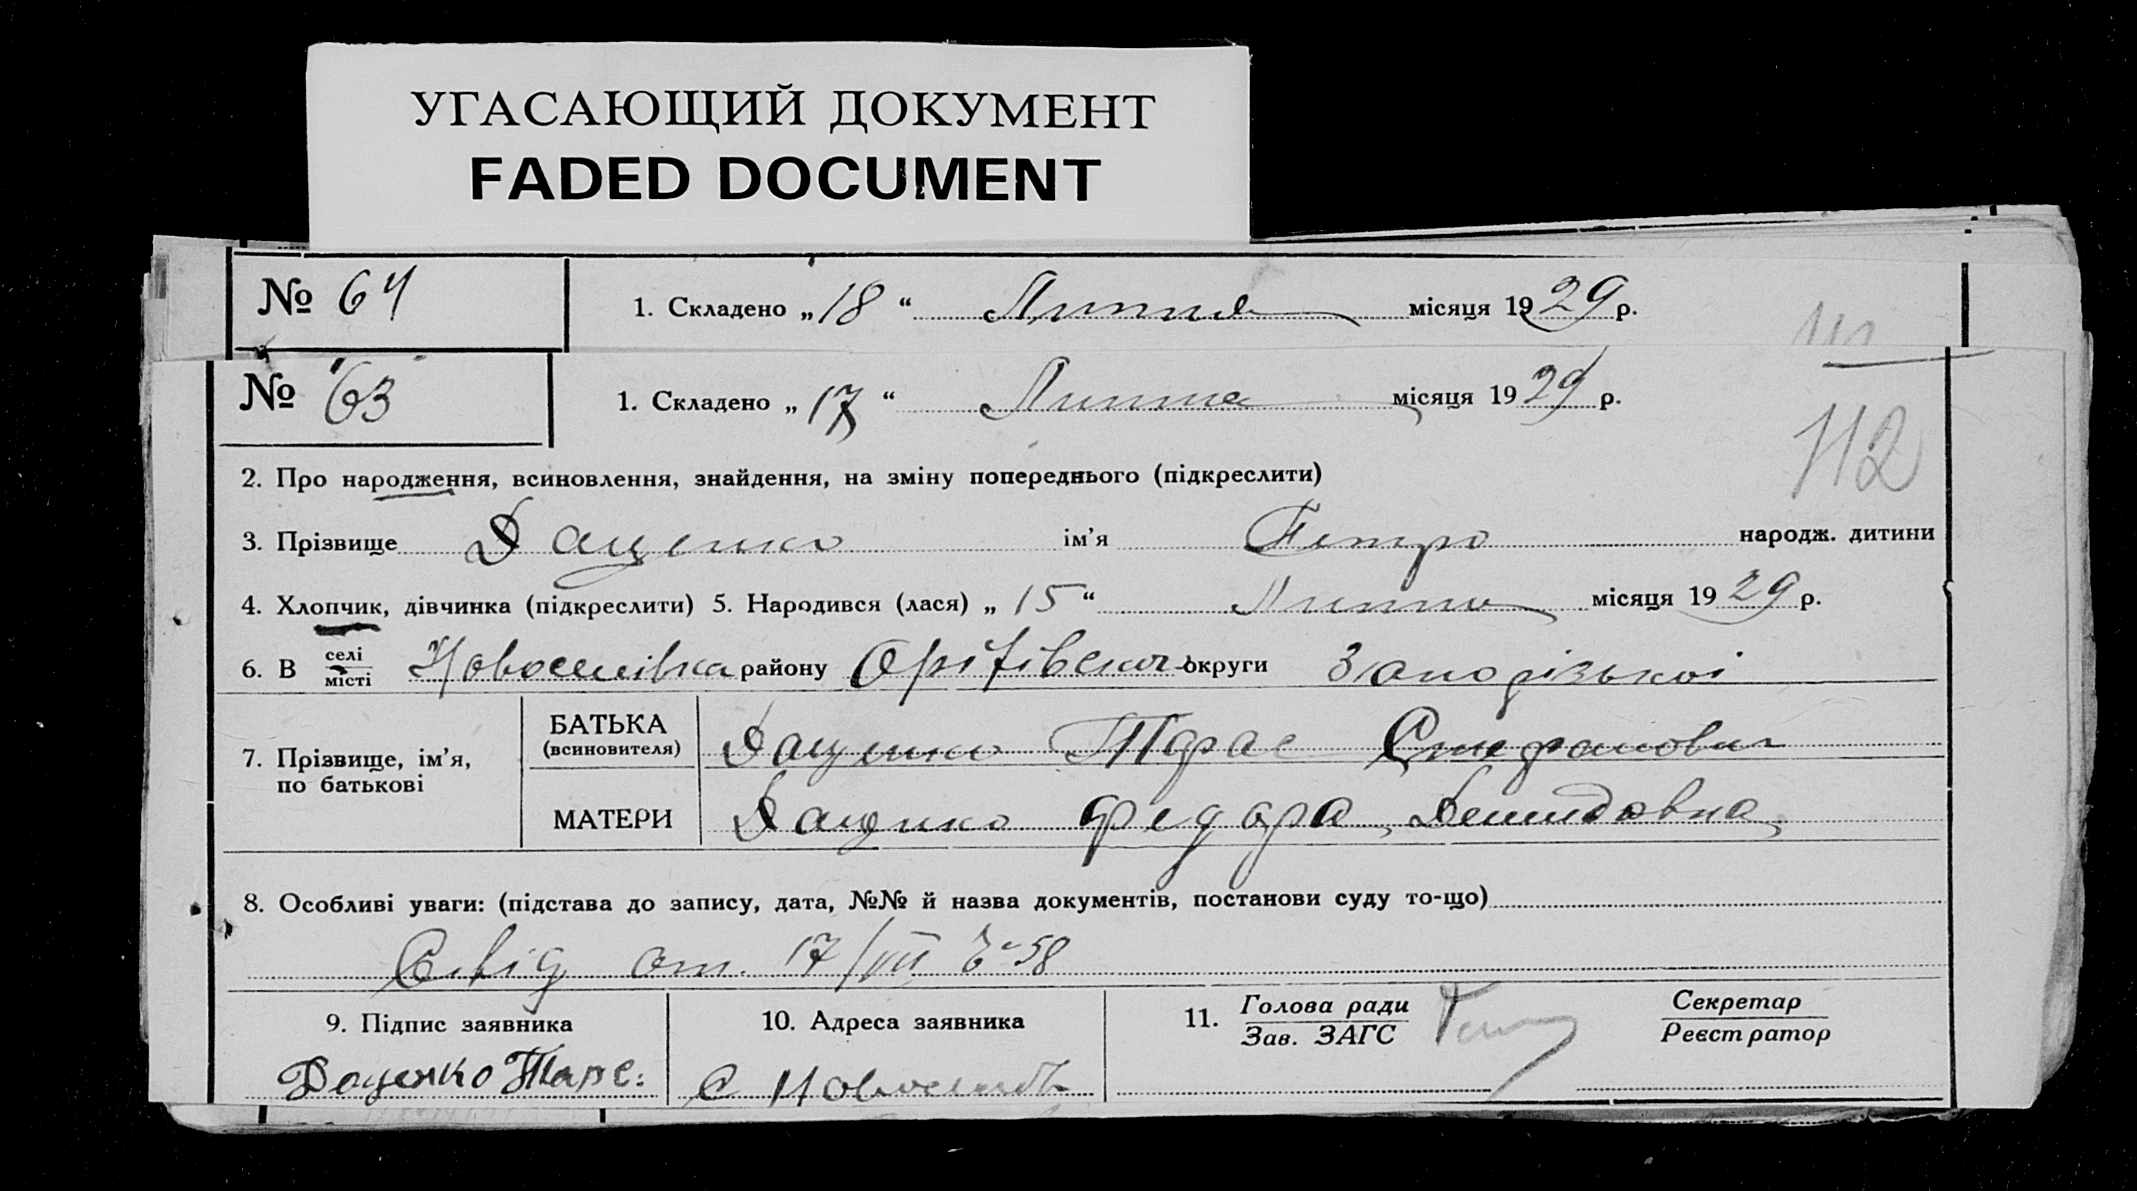 УГАСАЮЩИЙ ДОКУМЕНТ
FADED DOCUMENT
№ 64 1. Складено „18“ Липня місяця 1929 р.
№ 63 1. Складено „17“ Липня місяця 1929 р.
112
2. Про народження, всиновлення, знайдення, на зміну попереднього (підкреслити)
3. Прізвище Даценко ім'я Петро народж. дитини
4. Хлопчик, дівчинка (підкреслити) 5. Народився (лася) „15“ Липня місяця 1929 р.
6. В селі місті Новоселівка району Оріхівськ округи Запорізької
7. Прізвище, ім'я, по батькові
БАТЬКА (всиновителя) Даценко Тарас Стефанович
МАТЕРИ Даценко Федора Демидовна
8. Особливі уваги: (підстава до запису, дата, №№ й назва документів, постанови суду то-що)
от. 17/VII 58
9. Підпис заявника 10. Адреса заявника 11. Голова ради Зав. ЗАГС Секретар Реєстратор
Даценко Тарс: С